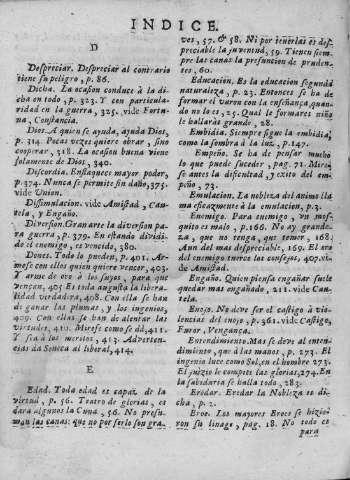 INDICE.
D
Despreciar. Despreciar al contrario
tiene su peligro, p. 86.
Dicha. La ocasion conduce à la di-
cha en todo, p. 323. Y con particula-
ridad en la guerra, 325. vide Fortu-
na, Constancia.
Dios. A quien se ayuda, ayuda Dios,
p. 314. Pocas vezes quiere obrar, sino
cooperar, 318. La ocasion buena viene
solamente de Dios, 340.
Discordia. Enflaquece mayor poder,
p. 374. Nunca se permite sin daño, 375.
vide Union.
Dissimulacion. vide Amistad, Cau-
tela, y Engaño.
Diversion. Granarte la diversion pa-
ra guerra, p. 379. En estando dividi-
do el enemigo, es vencido, 380.
Dones. Todo lo pueden, p. 401. Ar-
mese con ellos quien quiere vencer, 403.
Y arme de oro à los suyos, para que
vençan, 405. Es toda augusta la libera-
lidad verdadera, 408. Con ella se han
de ganar las plumas, y los ingenios,
409. Con ellas se han de alentar las
virtudes, 410. Mirese como se dà, 411.
Y sea à los meritos, 413. Adverten-
cias de Seneca al liberal, 414.
E
Edad. Toda edad es capaz de la
virtud, p. 56. Teatro de glorias, es
dara algunos la Cuna, 56. No presu-
man las canas: que no por serlo son gra-
ves, 57. & 58. Ni por teñerlas es des-
preciable la juventud, 59. Tienen siem-
pre las canas la presuncion de pruden-
tes, 60.
Educacion. Es la educacion segunda
naturaleza, p. 23. Entonces se ha de
formar el varon con la enseñança, quan-
do no lo es, 25. Qual le formares niño
le hallaràs grande, 28.
Embidia. Siempre sigue la embidia,
como la sombra à la luz, p. 147.
Empeño. Se ha de pensar mucho
lo que puede suceder, pag. 71. Mira-
se antes la dificultad, y exito del em-
peño, 73.
Emulacion. La nobleza del animo lla-
ma eficazmente à la emulacion, p. 3.
Enemigo. Para enemigo, un mos-
quito es malo, p. 166. No ay grande-
za, que no tenga, que temer, 168.
Aun del mas despreciable, 169. El oro
del enemigo tuerce los consejos, 407. vi-
de Amistad.
Engaño. Quien piensa engañar suele
quedar mas engañado, 211. vide Cau-
tela.
Enojo. No deve ser el castigo à vio-
lencias del enojo, p. 361. vide Castigo,
Furor, Vengança.
Entendimiento. Mas se deve al enten-
dimiento, que à las manos, p. 273. El
ingenio luce como Sol, en el hombre 273.
El juizio le compete las glorias, 274. En
la sabiduria se halla todo, 283.
Eredar. Eredar la Nobleza es di-
cha, p. 2.
Eroe. Los mayores Eroes se hizie-
ron su linage, pag. 18. No todo es
para